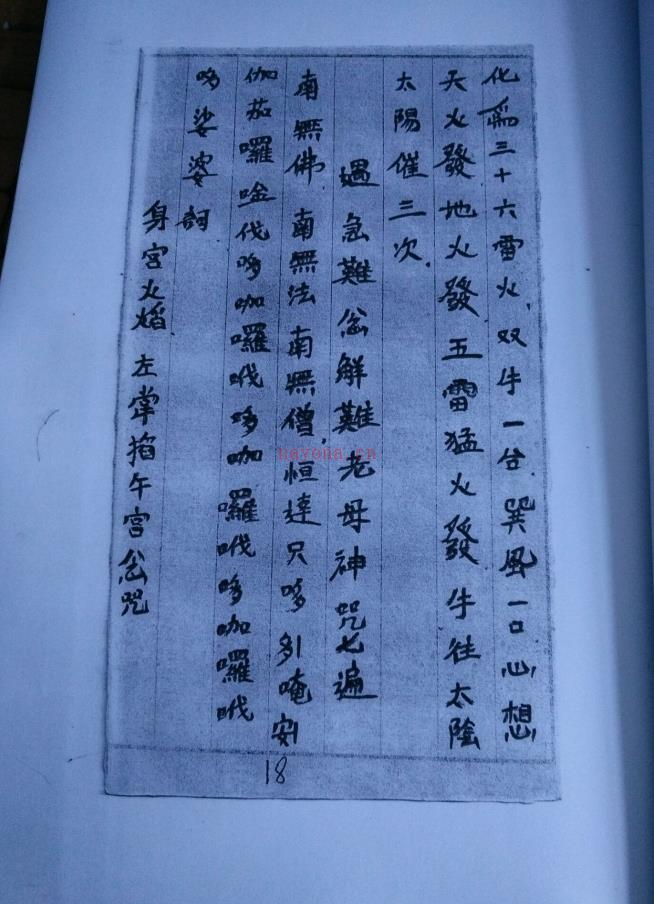 化爲三十六雷火，双牛一台巽風一口心想
天火發地火發五雷猛火發牛往太陰
太陽催三次．
遇急難忿解難老母神咒七遍
南無佛 南無法 南無僧，恒達只哆 多引唵 安
伽茄囉唫伐哆咖囉伐哆咖囉伐哆咖囉伐
哆娑婆訶
身宮火焰 左掌掐午宮忿咒
18
nayona.cn